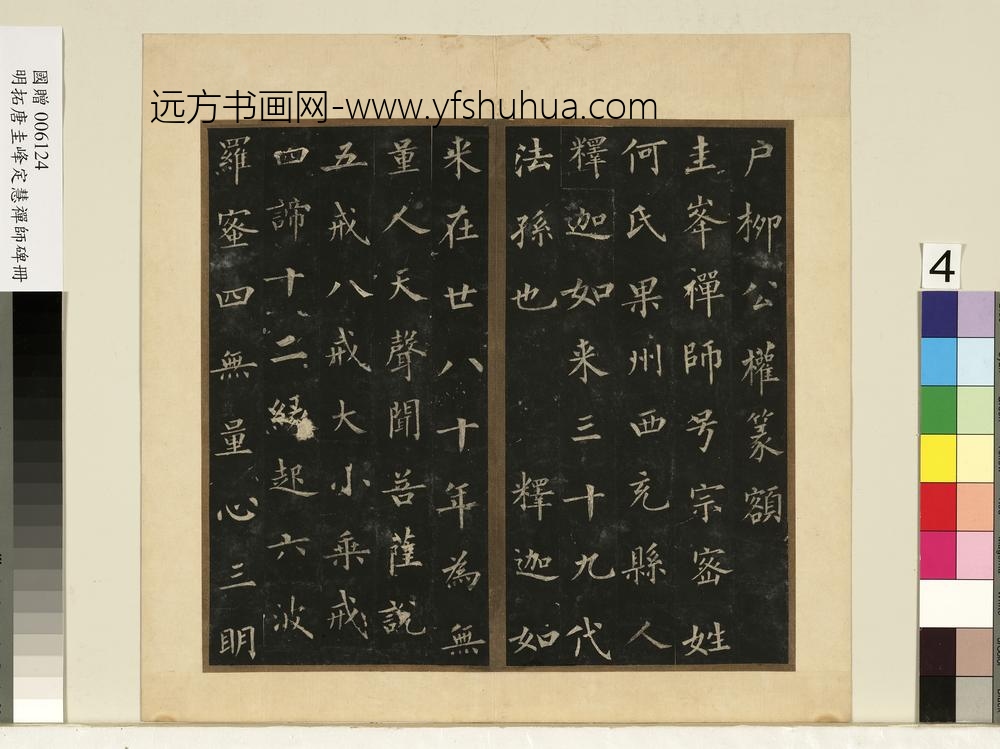 远方书画网-www.yfshuhua.com
國贈 006124
明拓唐圭峰定慧禪師碑冊
4
户柳公權篆額
圭峯禪師号宗密姓
何氏果州西充縣人
釋迦如来三十九代
法孫也 釋迦如
来在世八十年為無
量人天聲聞菩薩說
五戒八戒大小乗戒
四諦十二縁起六波
羅蜜四無量心三明